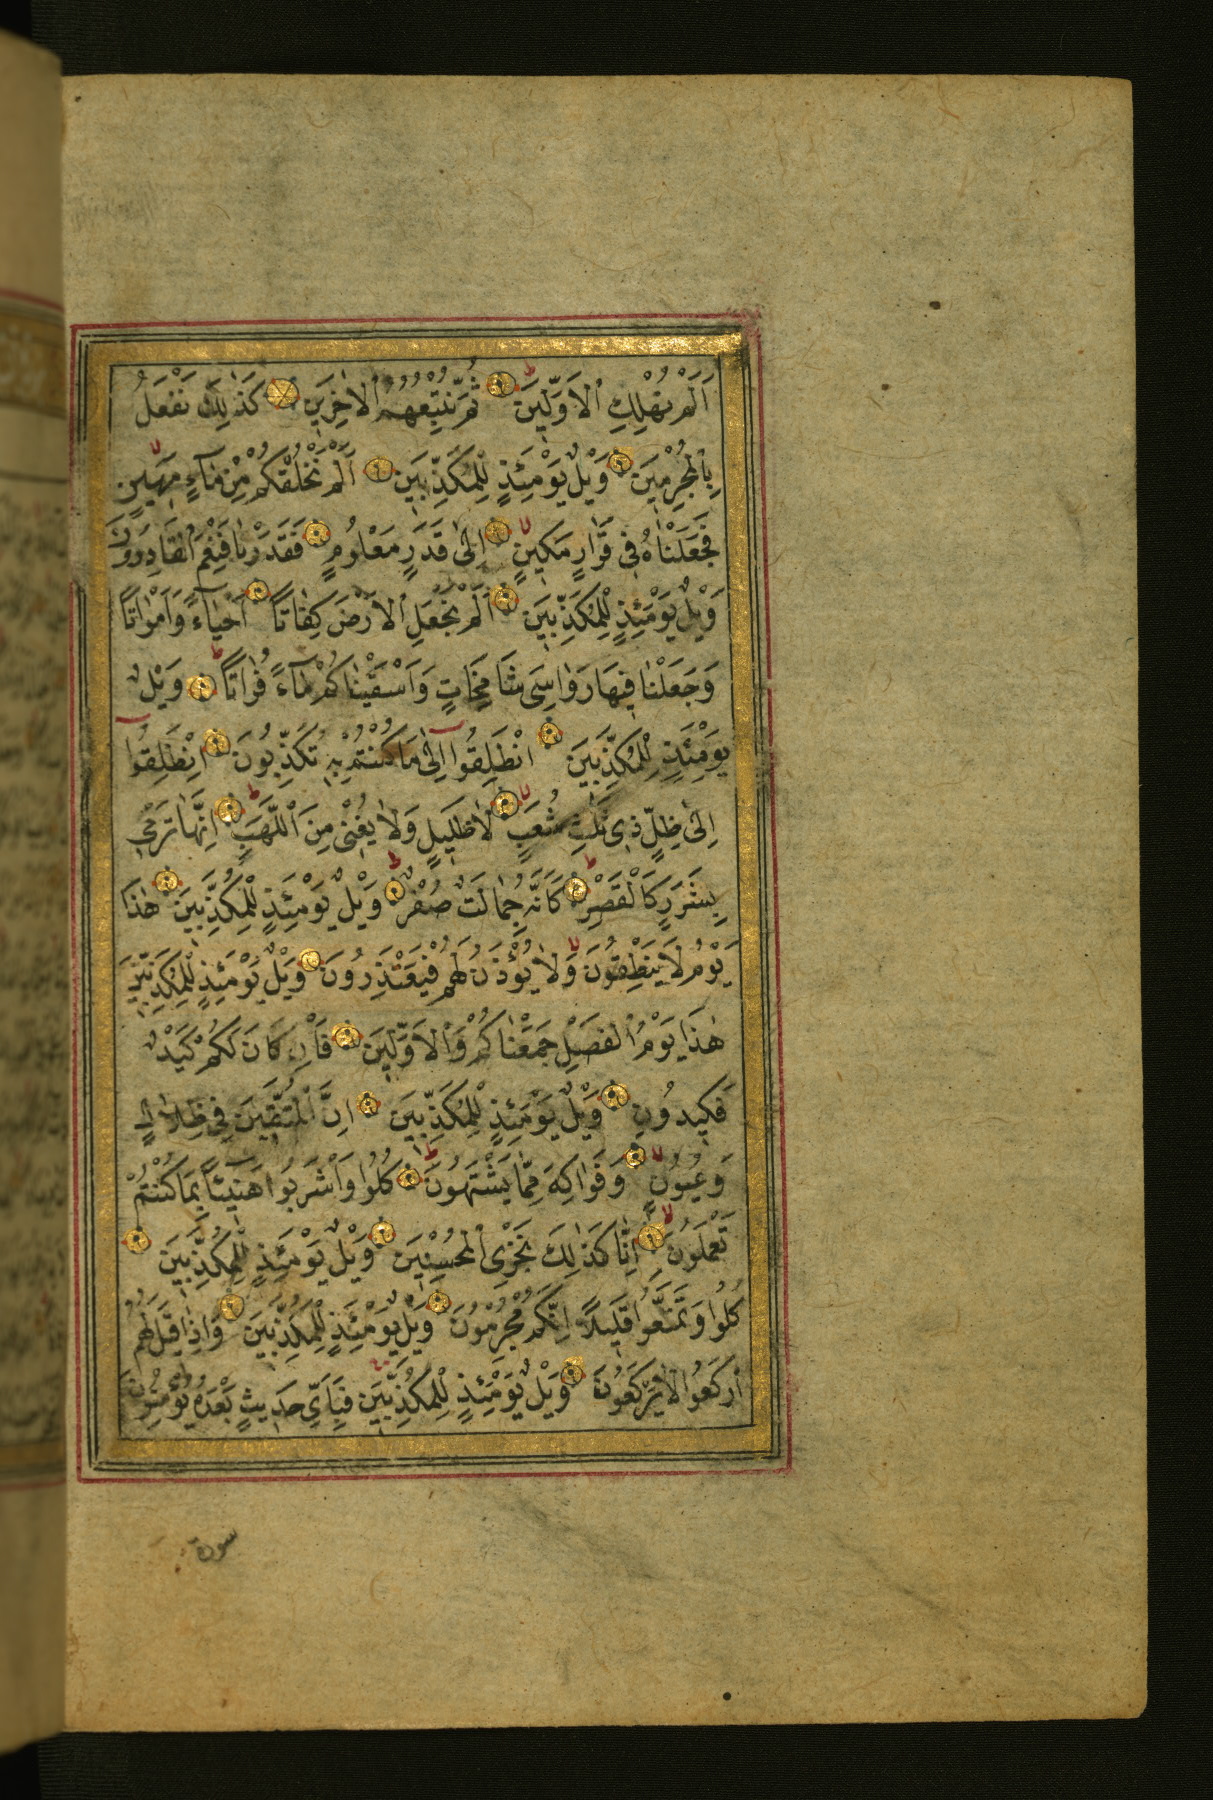 اَلَمْ نُهْلِكِ الْاَوَّلِينَ ثُمَّ نُتْبِعُهُمُ الْاٰخِرِينَ كَذٰلِكَ نَفْعَلُ
بِالْمُجْرِمِينَ وَيْلٌ يَوْمَئِذٍ لِلْمُكَذِّبِينَ اَلَمْ نَخْلُقْكُمْ مِنْ مَآءٍ مَهِينٍ
فَجَعَلْنَاهُ فِى قَرَارٍ مَكِينٍ اِلٰى قَدَرٍ مَعْلُومٍ فَقَدَرْنَا فَنِعْمَ الْقَادِرُونَ
وَيْلٌ يَوْمَئِذٍ لِلْمُكَذِّبِينَ اَلَمْ نَجْعَلِ الْاَرْضَ كِفَاتًا اَحْيَآءً وَاَمْوَاتًا
وَجَعَلْنَا فِيهَا رَوَاسِىَ شَامِخَاتٍ وَاَسْقَيْنَاكُمْ مَآءً فُرَاتًا وَيْلٌ
يَوْمَئِذٍ لِلْمُكَذِّبِينَ اِنْطَلِقُوا اِلٰى مَا كُنْتُمْ بِهِ تُكَذِّبُونَ اِنْطَلِقُوا
اِلٰى ظِلٍّ ذِى ثَلٰثِ شُعَبٍ لَا ظَلِيلٍ وَلَا يُغْنِى مِنَ اللَّهَبِ اِنَّهَا تَرْمِى
بِشَرَرٍ كَالْقَصْرِ كَاَنَّهُ جِمَالَتٌ صُفْرٌ وَيْلٌ يَوْمَئِذٍ لِلْمُكَذِّبِينَ هٰذَا
يَوْمُ لَا يَنْطِقُونَ وَلَا يُؤْذَنُ لَهُمْ فَيَعْتَذِرُونَ وَيْلٌ يَوْمَئِذٍ لِلْمُكَذِّبِينَ
هٰذَا يَوْمُ الْفَصْلِ جَمَعْنَاكُمْ وَالْاَوَّلِينَ فَاِنْ كَانَ لَكُمْ كَيْدٌ
فَكِيدُونِ وَيْلٌ يَوْمَئِذٍ لِلْمُكَذِّبِينَ اِنَّ الْمُتَّقِينَ فِى ظِلَالٍ
وَعُيُونٍ وَفَوَاكِهَ مِمَّا يَشْتَهُونَ كُلُوا وَاشْرَبُوا هَنِيئًا بِمَا كُنْتُمْ
تَعْمَلُونَ اِنَّا كَذٰلِكَ نَجْزِى الْمُحْسِنِينَ وَيْلٌ يَوْمَئِذٍ لِلْمُكَذِّبِينَ
كُلُوا وَتَمَتَّعُوا قَلِيلًا اِنَّكُمْ مُجْرِمُونَ وَيْلٌ يَوْمَئِذٍ لِلْمُكَذِّبِينَ وَاِذَا قِيلَ لَهُمُ
ارْكَعُوا لَا يَرْكَعُونَ وَيْلٌ يَوْمَئِذٍ لِلْمُكَذِّبِينَ فَبِاَىِّ حَدِيثٍ بَعْدَهُ يُؤْمِنُونَ
سورة